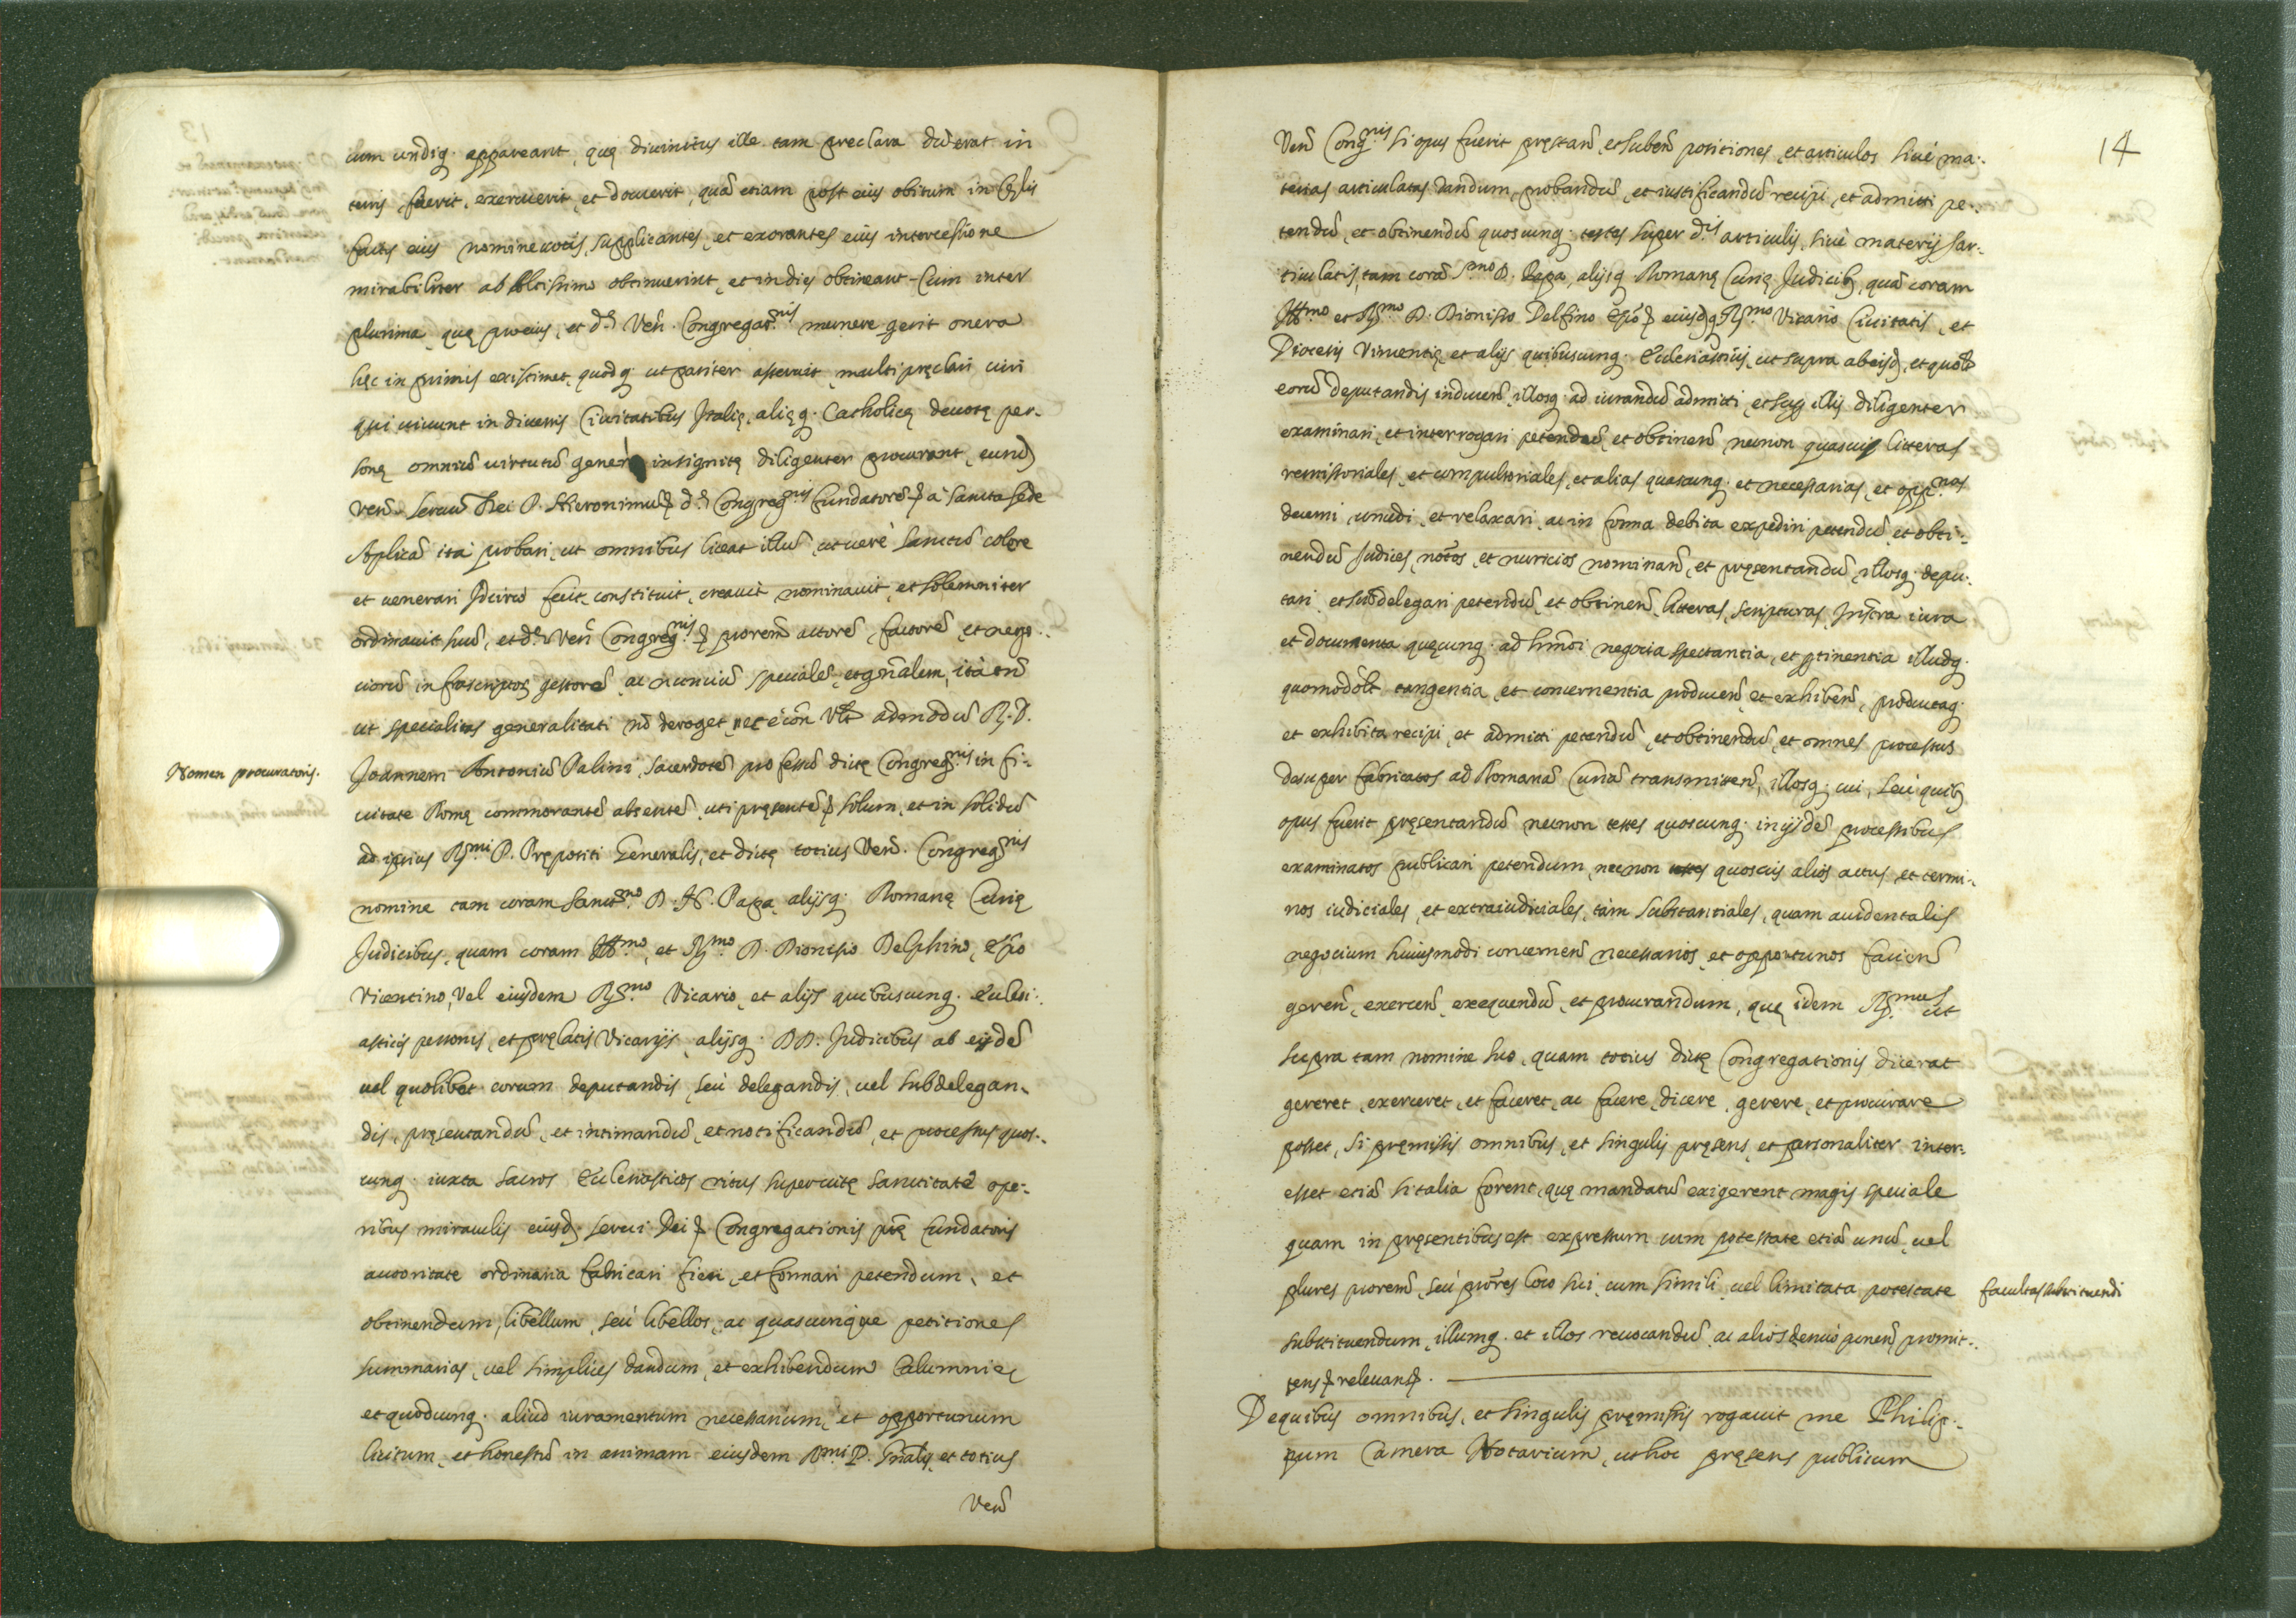 cum undiq. appareant, quę diuinitus ille tam preclara dixerat in
terris, fecerit, exercuerit, et docuerit, quã etiam post eius obitum in Cęlis
factis eius nomine uotis, supplicantes, et exorantes eius intercessione
mirabiliter ab Altissimo obtinuerint, et in dies obtineant. Cum inter
plurima, quę pro eius, et d.ę Ven. Congregat.nis munere gerit onera
hęc in primis existimet, quodq. ut pariter asseruit, multi pręclari uiri
qui uiuunt in diuersis Ciuitatibus Italię, alięq. Catholicę deuotę per-
sonę omniũ uirtutũ genere insignitę diligenter procurent, eund.
Ven. seruũ Dei P. Hieronimũ d.ę Congreg.nis fundatorẽ à sancta sede
Aplicã ità probari, ut omnibus liceat illũ, ut uerè sanctũ colere
et uenerari Idcircò fecit, constituit, creauit nominauit, et solemniter
ordinauit suũ, et d.ę Ven. Congreg.nis procrem actorẽ, factorẽ, et nego-
ciorũ infrascriptor. gestorẽ, ac nunciũ specialẽ, et gnãlem, ità tñ
ut specialitas generalitati nõ deroget, nec ecõn. Vz. admodũ R. P.
Nomen procuratoris.
Joannem Antoniũ Palini, sacerdotẽ professũ dictę Congreg.nis in Ci-
uitate Romę commorantẽ absentẽ, uti pręsentẽ solum, et in solidũ
ad ipsius R.mi P. Prępositi Generalis, et dictę totius Ven. Congreg.nis
nomine tam coram Sanct.mo D. N. Papa, alijsq. Romanę Curię
Judicibus, quam coram Ill.mo, et R.mo D. Dionisio Delphino, Epõ
Vicentino, Vel eiusdem R.mo Vicario, et alijs quibuscunq. Eclesi-
asticis personis, et pręlatis Vicarijs, alijsq. DD. Judicibus ab eisdẽ
uel quolibet eorum deputandis, seù delegandis, uel subdelegan-
dis, pręsentandũ, et intimandũ, et notificandũ, et processus quos-
cunq. iuxta sacros Eclesiasticos ritus super uitę sanctitate ope-
ribus miraculis eiusd. serui Dei Congregationis prę. fundatoris
autoritate ordinaria fabricari fieri, et formari petendum, et
obtinendum, libellum, seù libellos, ac quascunque petitiones
summarias, uel simplices dandum, et exhibendum Calumnię
et quodcunq. aliud iuramentum necessarium, et opportunum
licitum, et honestũ in animam eiusdem R.mi P. Gnãlis, et totius
Ven.
14
Ven. Cong.nis si opus fuerit pręstan. et suben. positiones, et articulos siuè ma-
terias articulatas dandum, probandũ, et iustificandũ recipi, et admitti pe-
tendũ, et obtinendũ quoscunq. testes super d.is articulis, siuè materijs ar-
ticulatis, tam corã S.mo D. Papa, alijsq. Romanę Curię Judicib. quã coram
Ill.mo et R.mo D. Dionisio Delfino Epõ eiusdq. R.mo Vicario Ciuitatis, et
Diocesis Vincentię et alijs quibuscunq. Eclesiasticis, ut supra ab eisd. et quolt
eorũ deputandis inducen. illosq. ad iurandũ admitti, et sup. illis diligenter
examinari, et interrogari petendũ, et obtinen. necnon quascuis litteras
remissoriales, et compulsoriales, et alias quascunq. et necessarias, et opp.nas
decerni, concedi, et relaxari, ac in forma debita expediri petendũ, et obti-
nendũ Judices, notos, et nuncios nominan. et pręsentandũ, illosq. depu-
tari, et subdelegari petendũ, et obtinen. litteras, scripturas, Instra iura
et documenta quęcunq. ad hmõi negocia spectantia, et ptinentia illudq.
quomodolt. tangentia, et concernentia producen. et exhiben. productaq.
et exhibita recipi, et admitti petendũ, et obtinendũ, et omnes processus
desuper fabricatos ad Romanã Curiã transmitten. illosq. cui, seù quib.
opus fuerit pręsentandũ necnon testes quoscunq. in ijsdẽ processibus
examinatos publicari petendum, necnon quoscuis alios actus, et termi-
nos iudiciales, et extraiudiciales, tàm substantiales, quam accidentalis
negocium huiusmodi concernen. necessarios, et opportunos facien.
geren. exercen. exequendũ, et procurandum, quę idem R.mus ut
supra tam nomine suo, quam totius dictę Congregationis dicerat
gereret, exerceret, et faceret, ac facere, dicere, gerere, et procurare
posset, si pręmissis omnibus, et singulis pręsens, et personaliter inter-
esset etiã si talia forent, quę mandatũ exigerent magis speciale
quam in pręsentibus est expressum cum potestate etiã unũ, uel
plures procrem, seù procres loco sui, cum simili, uel limitata potestate
facultas substituendi
substituendum, illumq. et illos reuocandũ, ac alios denuò ponen. promit-
tens relevans.
De quibus omnibus, et singulis pręmissis rogauit me Philip-
pum Camera Notarium, ut hoc pręsens publicum